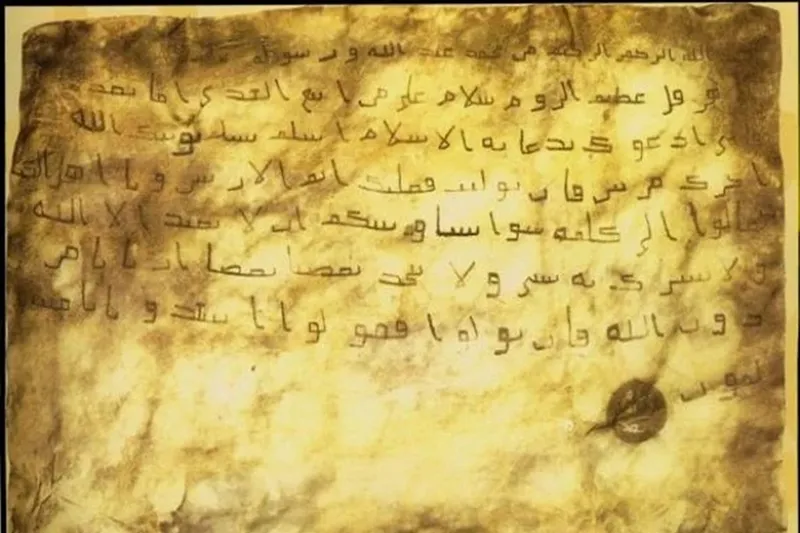 الله الرحمن الرحيم من محمد عبد الله ورسوله
هرقل عظيم الروم سلام على من اتبع الهدى اما بعد
ادعوك بدعاية الاسلام اسلم تسلم يوتك الله
اجرك مرتين فان توليت فعليك اثم الاريسين ويا اهل الك
تعالوا الى كلمة سوا بيننا وبينكم ان لا نعبد الا الله
ولا نشرك به شي ولا يتخذ بعضنا بعضا اربابا من
دون الله فان تولوا فقولوا اشهدوا بانا مس
لمون